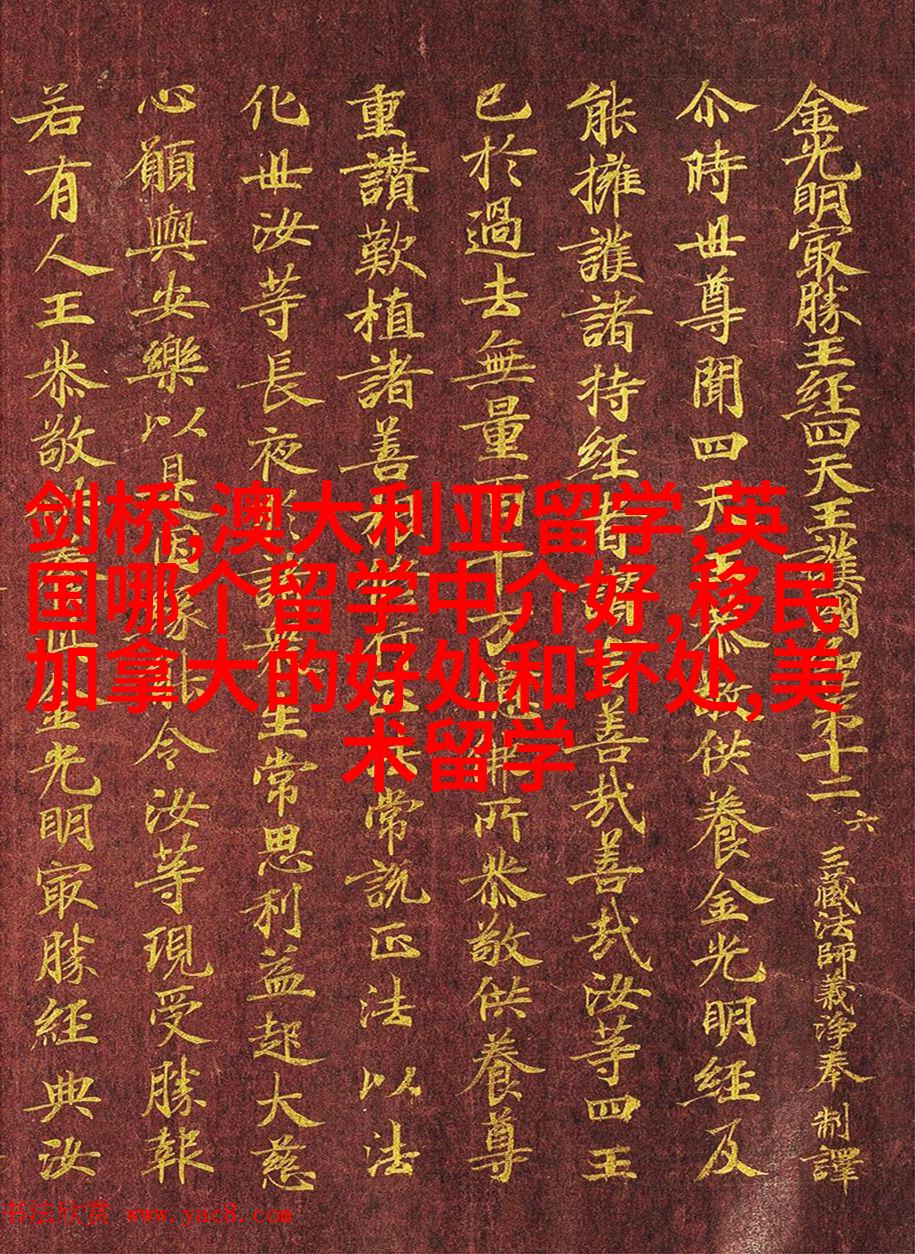 金光明冣勝王經四天王護國品第十二 六 三藏法師義淨奉 制譯
尒時世尊聞四天王恭敬供養金光明經及
能擁護諸持經者讚言善哉善哉汝等四王
已於過去無量百千万億佛所恭敬供養尊
重讃歎植諸善根行法常説正法以法
化世汝等長夜於諸衆生常思利益起大慈
心願與安樂以是因緣令汝等現受勝報
若有人王恭敬供養此金光明冣勝經典汝
剑桥,澳大利亚留学,英
国哪个留学中介好,移民
加拿大的好处和坏处,美
术留学
书法欣赏 www.yac8.com